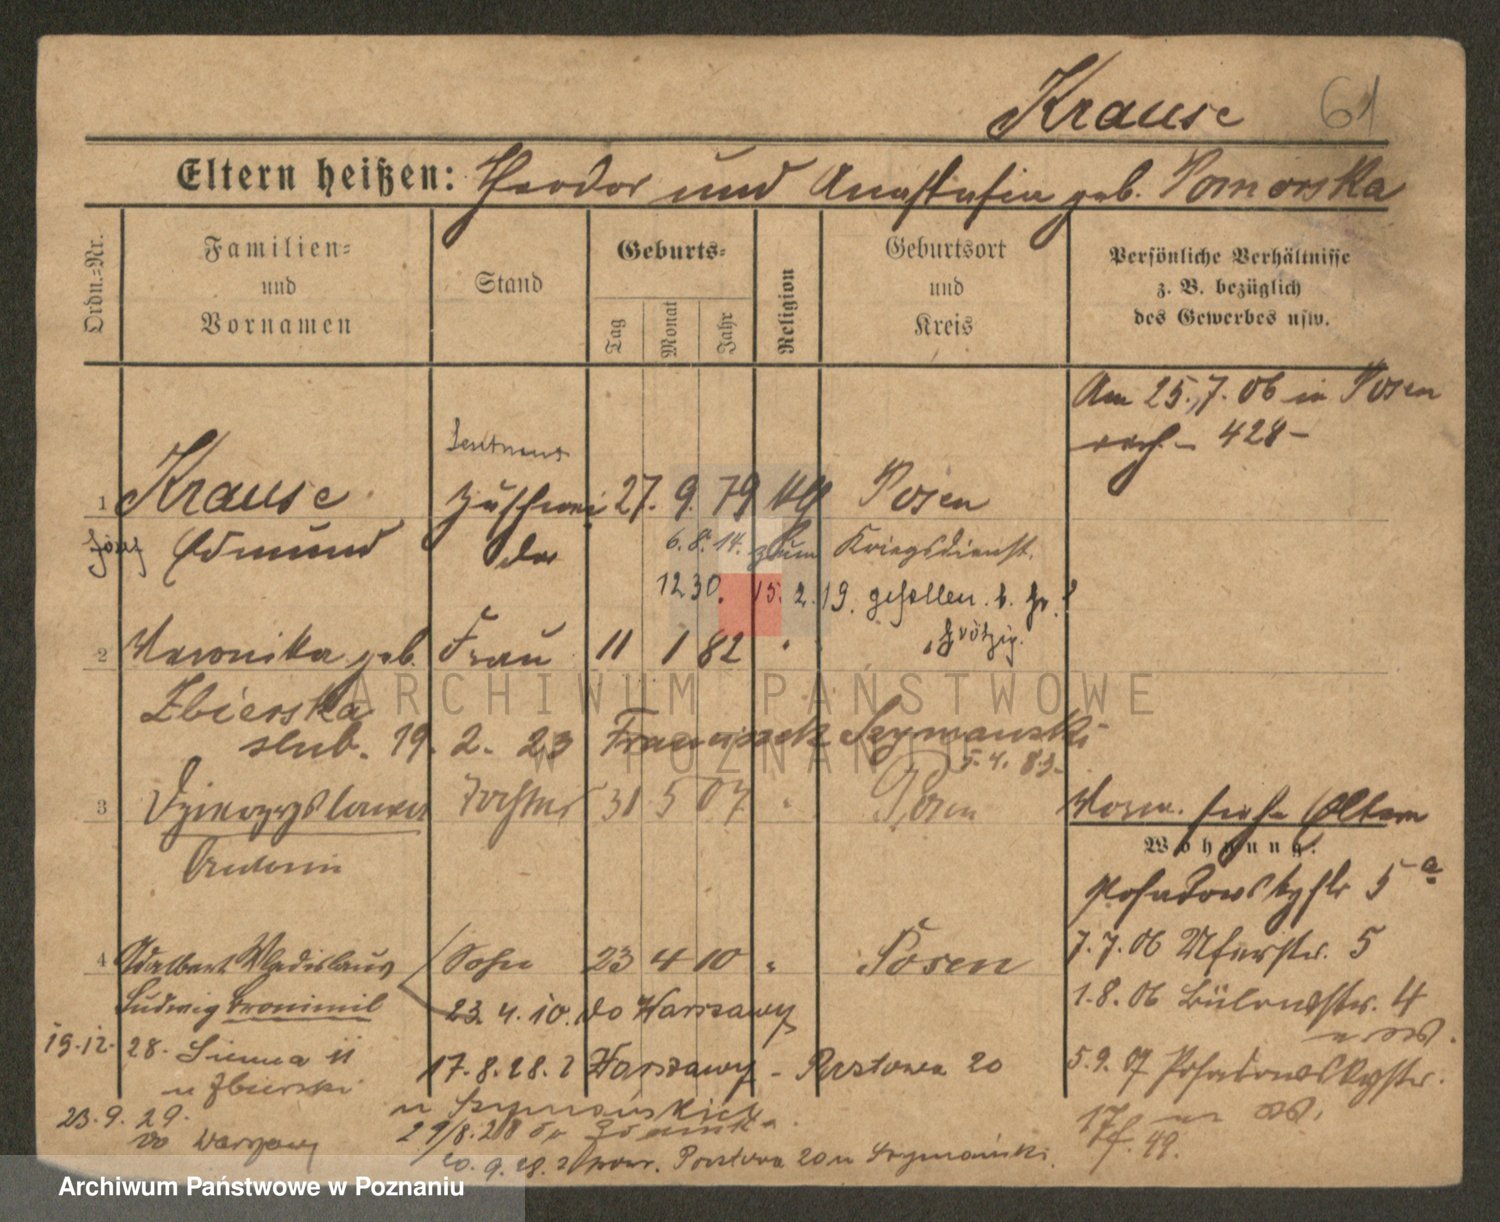 Krause 61
Eltern heißen: Theodor und Anastasia geb. Pomorska
Ordn.=Nr.
Familien=
und
Vornamen
Stand
Geburts=
Tag
Monat
Jahr
Religion
Geburtsort
und
Kreis
Persönliche Verhältnisse
z. B. bezüglich
des Gewerbes usw.
Am 25.7.06 in Posen
428
Leutnant
1 Krause Zuschnei 27. 9. 79 Posen
Józef Edmund der 6.8.14. zum Kriegsdienst.
15.2.19. gefallen. b.
2 Veronika geb. Frau 11 1 82
Zbierska
ślub. 19. 2. 23 Franciszek Szymański
5.4.83.
3 Tochter 31 5 07 Posen
siehe Eltern
Wohnung.
Posadowskystr 5a
4 Adalbert Wladislaus Sohn 23 4 10 Posen
7.7.06 Uferstr. 5
Ludwig Bronimil 23.4.10. do Warszawy
1.8.06 Bülowstr. 4
19.12.28. Sienna 11
u Zbierski
17.8.28. z Warszawy - Prztowa 20
5.9.07 Posadowskystr.
u Szymańskich
23.9.29.
do Warszawy
20.9.28. 20 u Szymański
ARCHIWUM PAŃSTWOWE
W POZNANIU
Archiwum Państwowe w Poznaniu